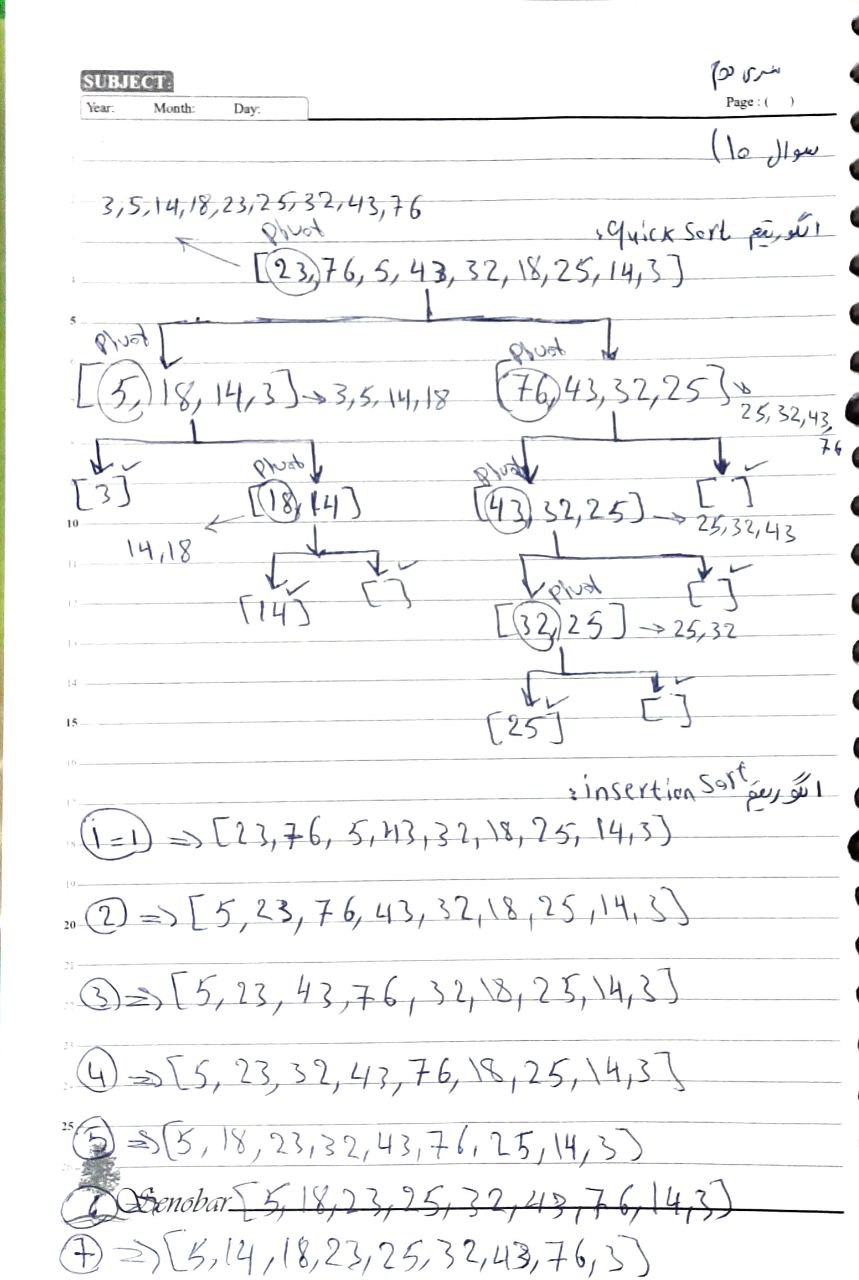 سری دوم
SUBJECT:
Year: Month: Day:
Page : ( )
سوال 10)
الگوریتم quick sort:
3,5,14,18,23,25,32,43,76
pivot
[23,76,5,43,32,18,25,14,3]
pivot pivot
[5,18,14,3]→3,5,14,18 [76,43,32,25]→25,32,43,76
[3]✓ pivot [18,14] pivot [43,32,25]→25,32,43 [ ]✓
14,18
[14]✓ [ ]✓ pivot [32,25]→25,32 [ ]✓
[25]✓ [ ]✓
الگوریتم insertion sort:
i=1 ⇒ [23,76,5,43,32,18,25,14,3]
2 ⇒ [5,23,76,43,32,18,25,14,3]
3 ⇒ [5,23,43,76,32,18,25,14,3]
4 ⇒ [5,23,32,43,76,18,25,14,3]
5 ⇒ [5,18,23,32,43,76,25,14,3]
6 Senobar [5,18,23,25,32,43,76,14,3]
7 ⇒ [5,14,18,23,25,32,43,76,3]